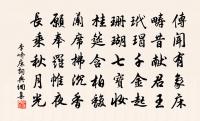 傳聞有象床
疇昔獻君王
玳瑁千金起
珊瑚七寶妝
桂筵含柏馥
蘭席拂沉香
願奉羅帷夜
長乘秋月光
李嶠床詞典網集